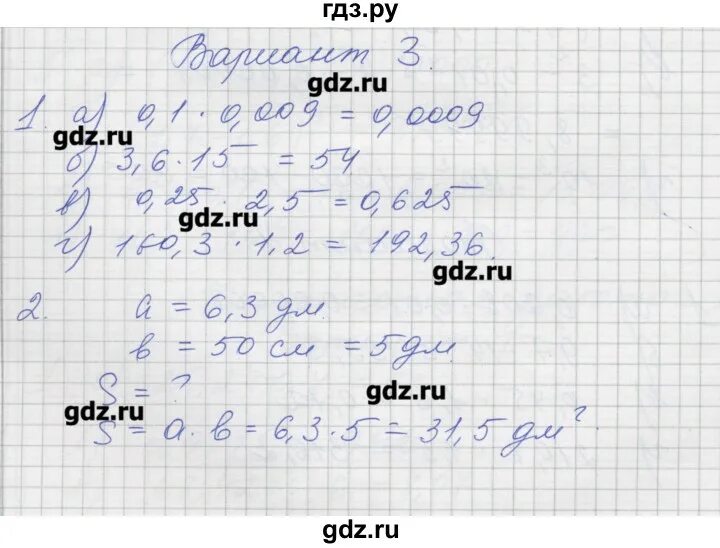 гдз.ру
Вариант 3.
gdz.ru
1. а) 0,1 · 0,009 = 0,0009
gdz.ru
б) 3,6 · 15 = 54
в) 0,25 · 2,5 = 0,625
gdz.ru
г) 160,3 · 1,2 = 192,36.
gdz.ru
2. a = 6,3 дм.
в = 50 см = 5 дм.
S = ?
gdz.ru
gdz.ru
S = a · в = 6,3 · 5 = 31,5 дм²
gdz.ru